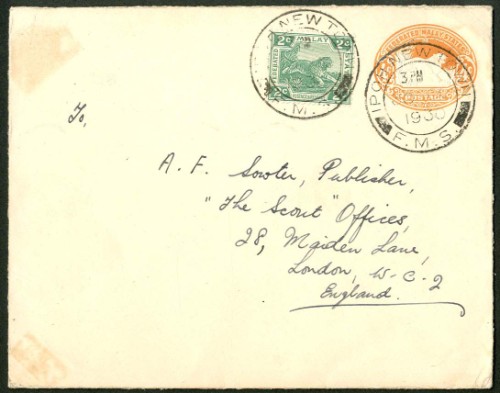 NEW T
2c MALAY 2c
FEDERATED
FEDERATED MALAY STATES
IPOH NEW
3 PM
POSTAGE
F.M.S.
To,
A. F. Sowter, Publisher,
"The Scout" Offices,
28, Maiden Lane,
London, W-C-2
England.